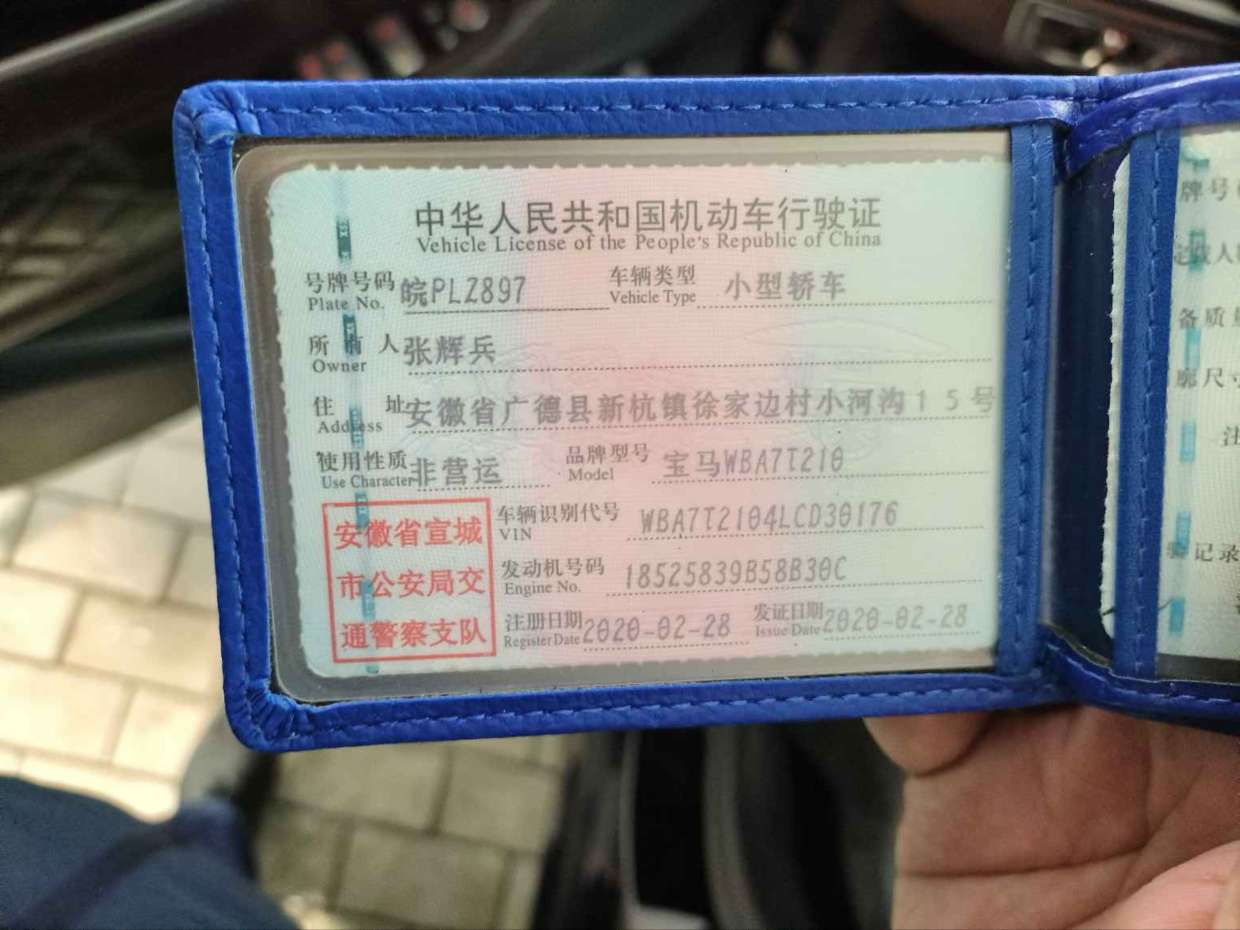 中华人民共和国机动车行驶证
Vehicle License of the People's Republic of China
号牌号码 皖PLZ897 车辆类型 小型轿车
Plate No. Vehicle Type
所有人 张辉兵
Owner
住址 安徽省广德县新杭镇徐家边村小河沟15号
Address
使用性质 非营运 品牌型号 宝马WBA7T210
Use Character Model
安徽省宣城
市公安局交
通警察支队
车辆识别代号 WBA7T2104LCD30176
VIN
发动机号码 18525839B58B30C
Engine No.
注册日期 2020-02-28 发证日期 2020-02-28
Register Date Issue Date
牌号
定载人
备质量
廓尺寸
注
记录